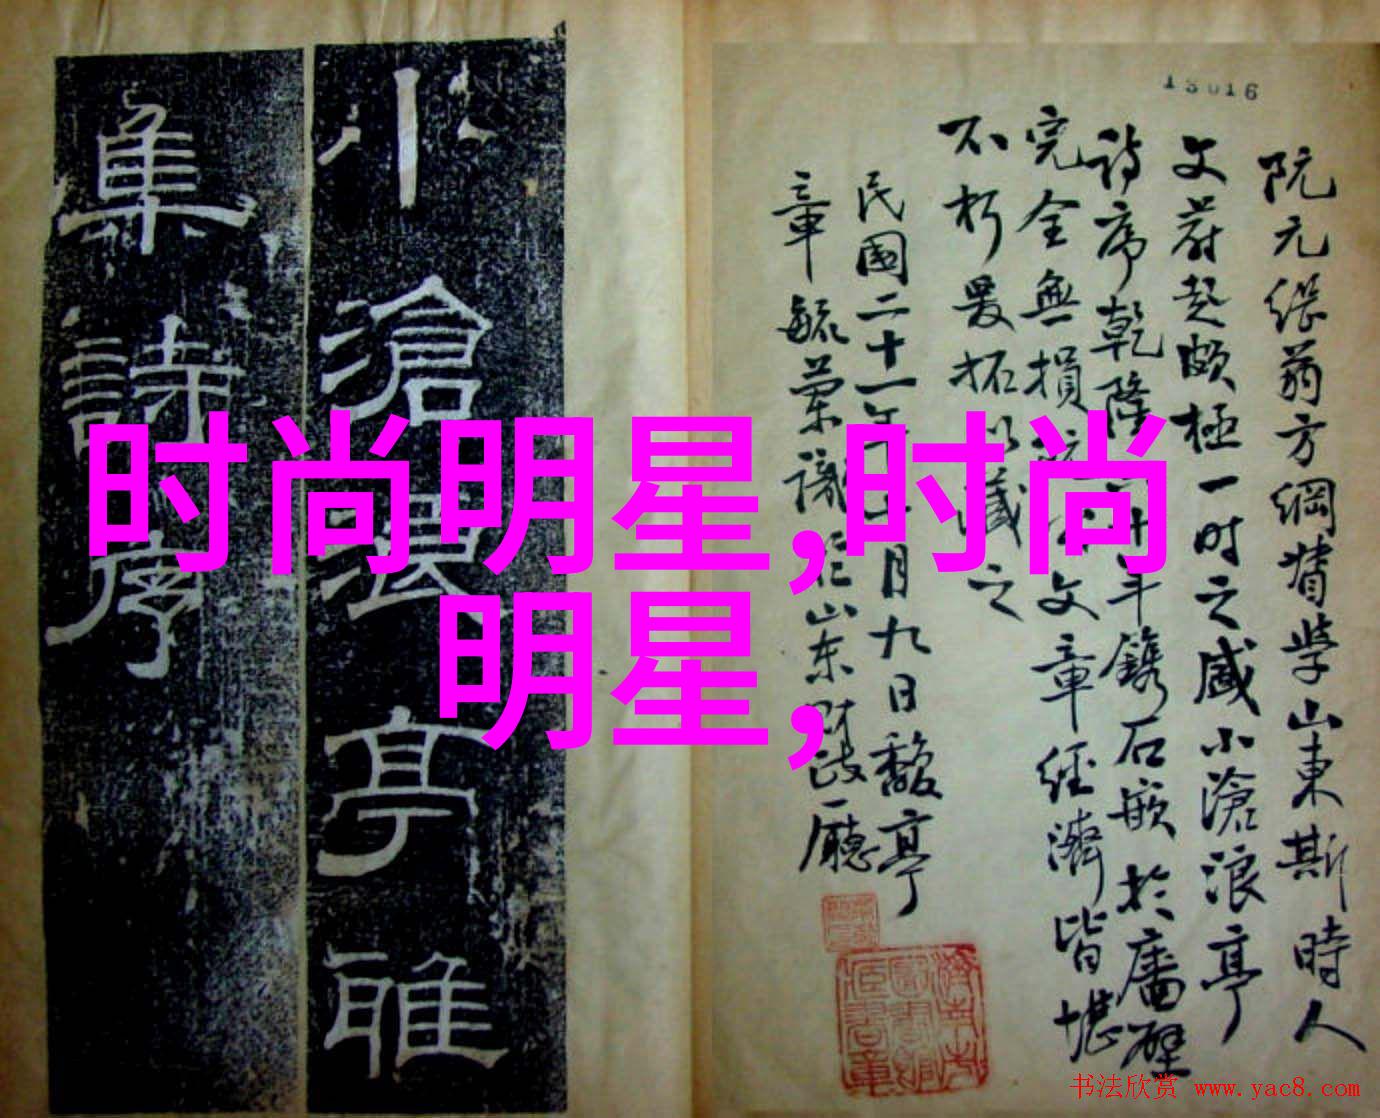 13016
阮元継翁方綱督学山東斯時人
文蔚起頗極一时之盛小滄浪亭
詩序乾隆年鐫石嵌於廧壁
完全無損文章經濟皆堪
不朽爰拓以藏之
民國二十一年月九日馥亭
章毓蘭識於山东財政廳
小滄浪亭雅
集詩序
时尚明星,时尚
明星,
书法欣赏 www.yac8.com